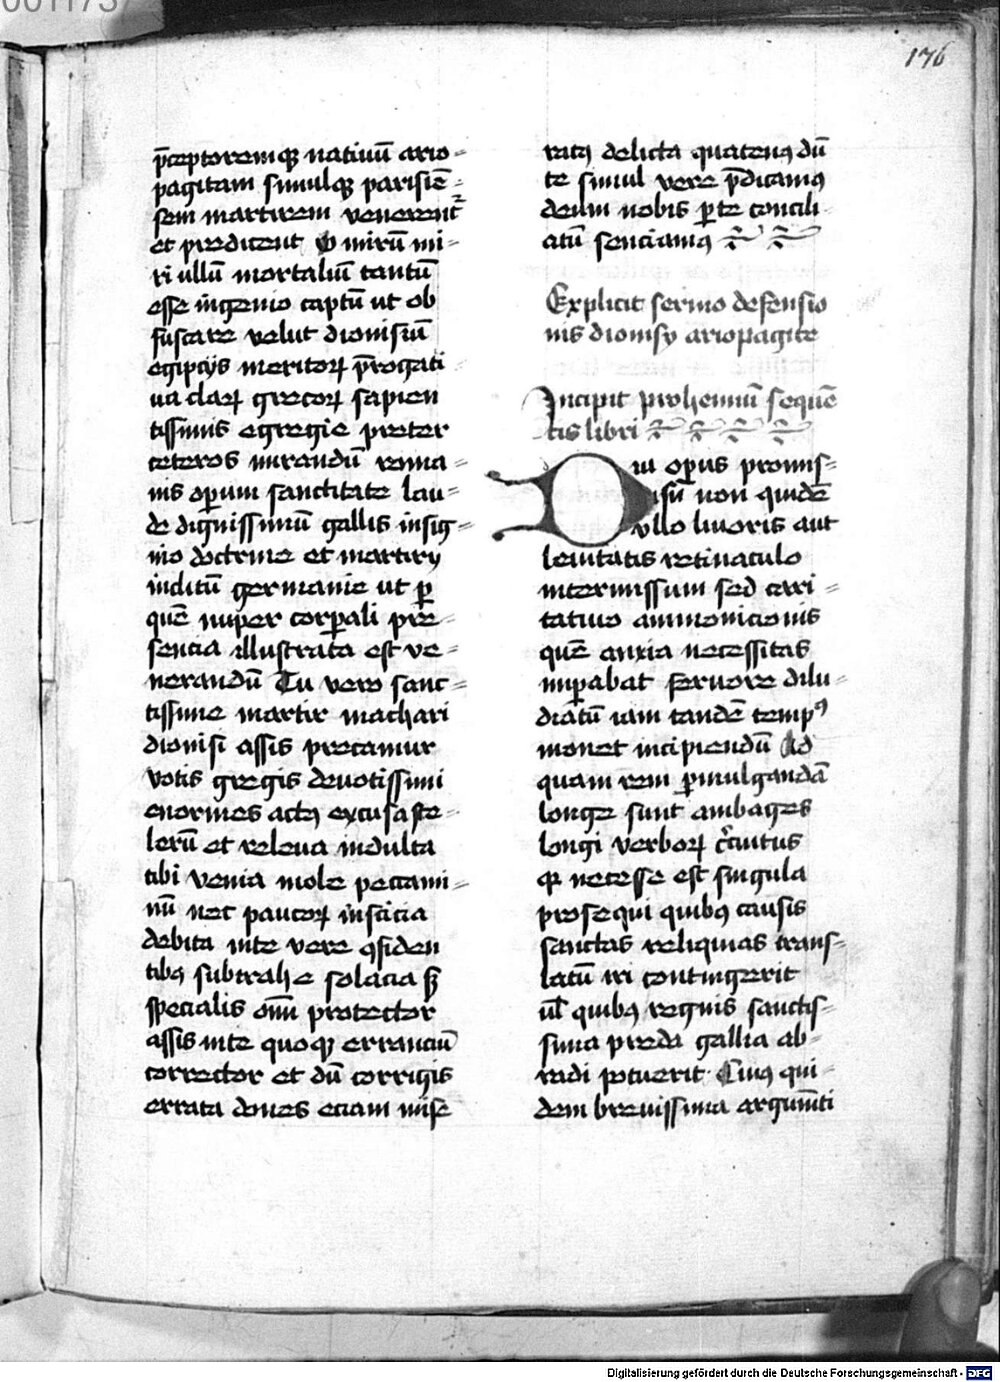 176
p̄ceptoremqꝫ natiuū ario=
pagitam simulqꝫ parisiē=
sem martirem venerent᷑
et predicent O mirū mi=
ri ullū mortaliū tantū
esse ingenio captū ut ob
fuscare velut dionisiū
egipcijs meritoꝝ p̄rogati
ua claꝝ grecoꝝ sapien
tissimis egregie preter
ceteros mirandū roma=
nis oꝑum sanctitate lau=
de dignissimū gallis insig=
nio doctrine et martiry
inclitū germanie ut ꝑ
quē nuper corꝑali pre=
sencia illustrata est ve=
nerandū Tu vero sanc=
tissime martir machari
dionisi assis precamur
votis gregis deuotissimi
enormes actꝰ excusa sce=
lerū et releua indulta
tibi venia mole peccami=
nū nec paucoꝝ insticia
debita inte vere ꝯfiden
tibꝫ subtrahe solacia sꝫ
specialis om̄i protector
assis inte quoqꝫ erranciū
corrector et dū corrigis
errata dones eciam mise
ratꝰ delicta quatenꝰ dū
te simul vere p̄dicamꝰ
deum nobis ꝑ te concili
atū senciamꝰ
Explicit sermo defensio
nis dionisy ariopagite
Incipit prohemiū sequē
tis libri
Diu opus promis=
sū non quidē
ullo liuoris aut
leuitatis retinaculo
intermissum sed cari=
tatiuo ammonicionis
quē anxia necessitas
imꝑabat feruore dilu=
diatū iam tandē tempꝰ
monet incipiendū Ad
quam rem ꝓmulgandā
longe sunt ambages
longi verboꝝ c̓cuitus
qꝛ necesse est singula
prosequi quibꝫ causis
sanctas reliquias trans=
latū iri contingerit
ul̓ quibꝫ regnis sanctis=
sima preda gallia ab=
radi potuerit Cuiꝰ qui=
dem breuissima argum̄ti
Digitalisierung gefördert durch die Deutsche Forschungsgemeinschaft - DFG